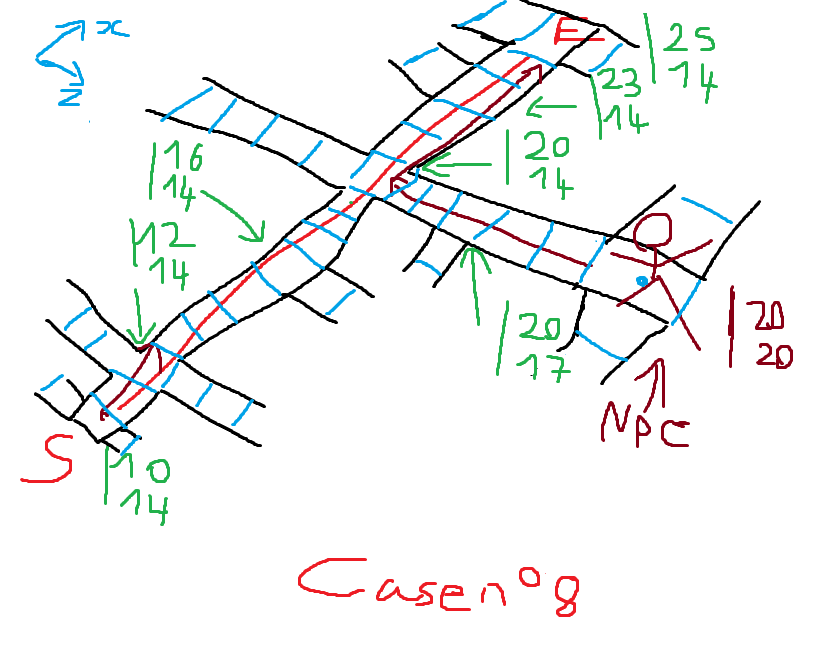 x
z
E
25
14
23
14
20
14
16
14
12
14
20
17
20
20
NPC
S
10
14
Case n°8